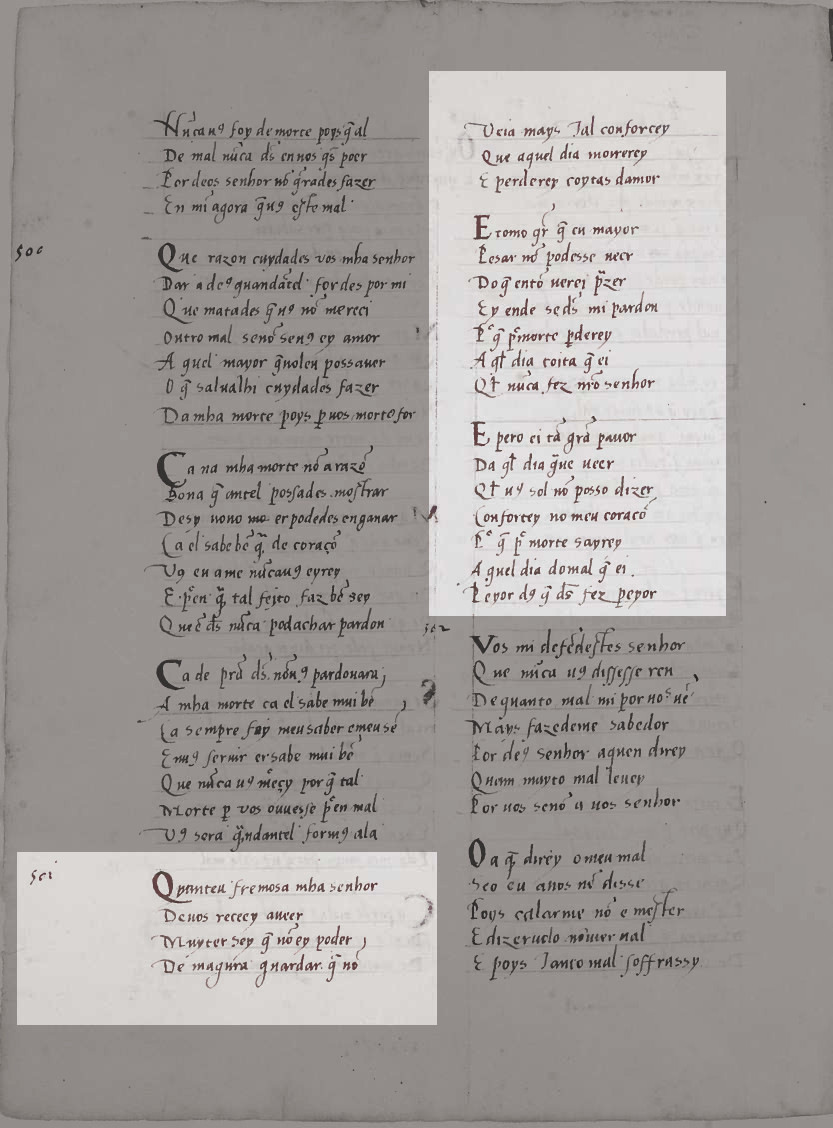 Nūcauꝯ foy de morte poys q̄ al
De mal nūca ds̄ en uos q̄s poer
Por deos senhor nō q̄rades fazer
En mī agora q̄uꝯ este mal
500
Que razon cuydades vos mha senhor
Dar a deꝯ quandātel for des por mi
Que matades q̄uꝯ nō mereci
Outro mal senō senꝯ ey amor
Aquel mayor q̄uoleu possauer
O q̄ salualhi cuydades fazer
Da mha morte poys ꝑ uos morto for
Ca na mha morte nō a razō
Bona q̄ antel possades mostrar
Desy uono er podedes enganar
Ca el sabe bē q̄ de coraçō
Vꝯ eu ame nūcauꝯ eyrey
E pͥen q̄ tal feito faz bē sey
Que ē ds̄ nūca podachar pardon
Ca de prā ds̄ nōuꝯ pardouara
A mha morte ca el sabe mui bē
Ca sempre foy meu saber e meu sē
Enuꝯ seruir er sabe mui bē
Que nūca uꝯ mēçy por q̄ tal
Morte ꝑ vos ouuesse pͥen mal
Vꝯ sera q̄ndantel formꝯ ala
501
Quanteu fremosa mha senhor
De uos receey aueer
Muyter sey q̄ nō ey poder
De magura guardar q̄ nō
Veia mays Tal conforcey
Que aquel dia morrerey
E perderey coytas damor
E como qͬ q̄ eu mayor
Pesar nō podesse ueer
Do q̄ entō uerei pͣzer
Ey ende se ds̄ mi pardon
Pͦ q̄ pͬ morte ꝑderey
A ql̄ dia coita q̄ ei
Ql̄ nūca fez nrō senhor
E pero ei tā grā pauor
Da ql̄ dia g̃ue ueer
Ql̄ uꝯ sol nō posso dizer
Confortey no meu coracō
Pͦ q̄ pͬ morte sayrey
Aquel dia do mal q̄ ei
Peyor dꝯ q̄ ds̄ fez peyor
502
Vos mi defēdestes senhor
Que nūca uꝯ dissesse ren
De quanto mal mi por uos uē
Mays fazedeme sabedor
Por deꝯ senhor aquen direy
Quam muyto mal leuey
Por uos senō a uos senhor
Oa q̄ direy o meu mal
Seo eu auos nō disse
Poys calarme nō e mester
E dizeruolo nōmer ual
E poys Tanto mal soffrassy